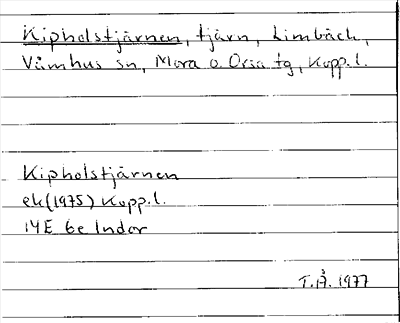 Kipholstjärnen, tjärn, Limbäck,
Våmhus sn, Mora o. Orsa tg, Kopp. l.
Kipholstjärnen
ek (1975) Kopp. l.
14E 6e Indor
T.Å. 1977